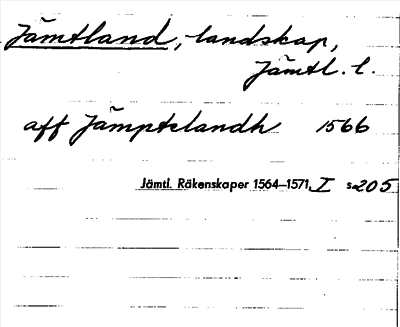 Jämtland, landskap,
Jämtl. l.
aff Jämptelandh 1566
Jämtl. Räkenskaper 1564—1571, I s 205